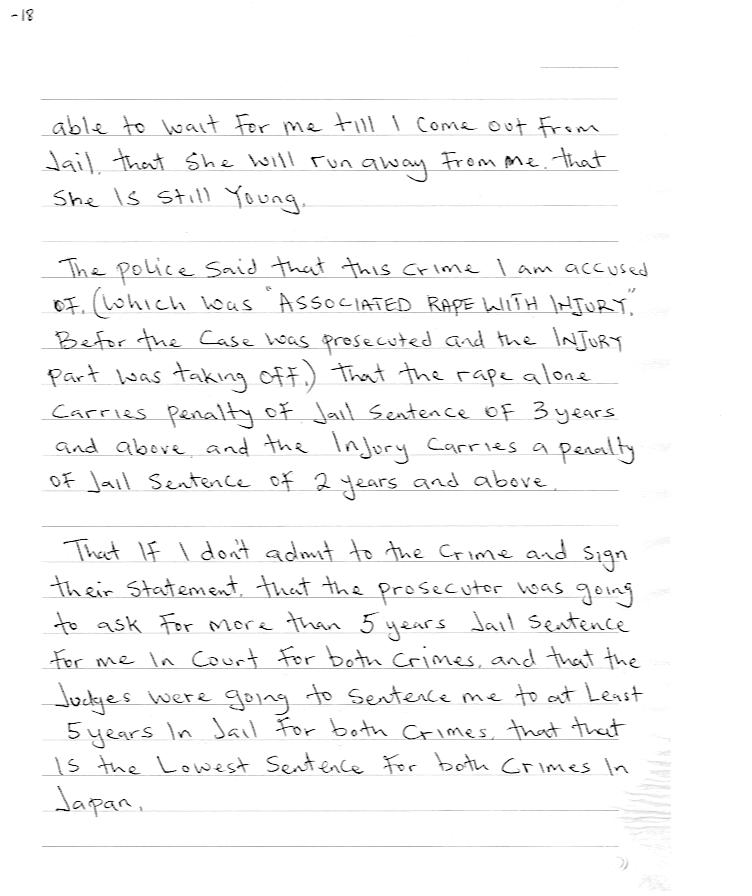 -18
able to wait for me till I come out from
Jail, that she will run away from me. that
she is still Young.
The police said that this crime I am accused
of. (which was "ASSOCIATED RAPE WITH INJURY."
Befor the case was prosecuted and the INJURY
part was taking off.) That the rape alone
carries penalty of Jail sentence of 3 years
and above, and the Injury carries a penalty
of Jail sentence of 2 years and above.
That If I don't admit to the crime and sign
their statement, that the prosecutor was going
to ask for more than 5 years Jail sentence
for me in court for both crimes, and that the
Judges were going to sentence me to at Least
5 years in Jail for both crimes, that that
is the Lowest sentence for both crimes in
Japan.